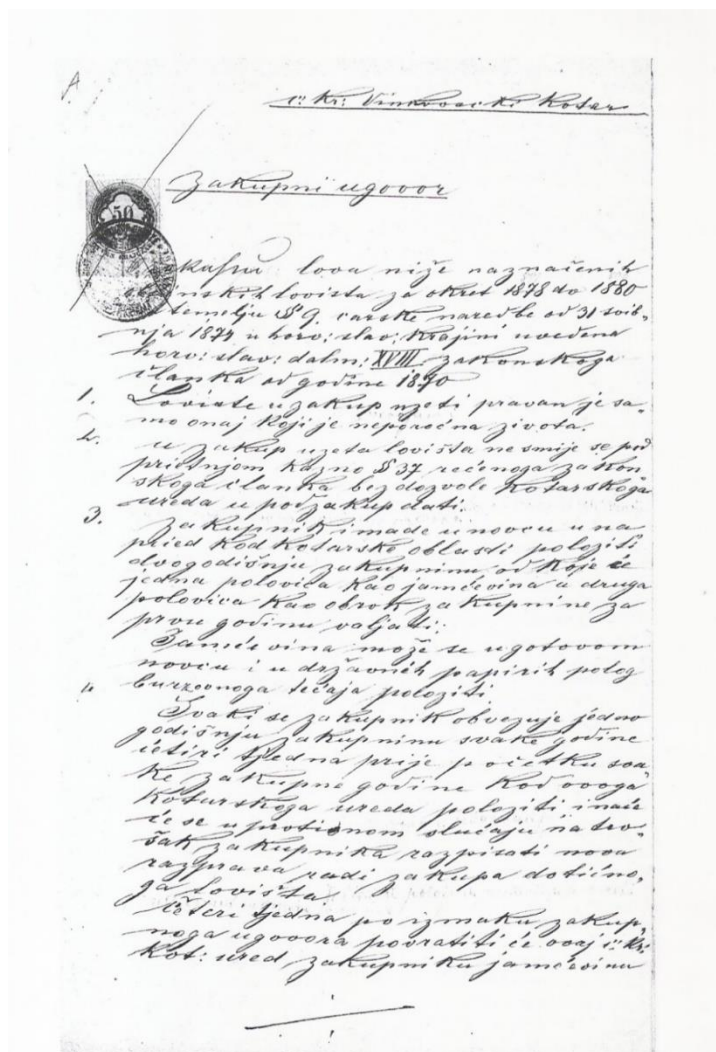 A
c: Kr: Vinkovački Kotar
Zakupni ugovor
50
lova niže naznačenih
lovišta za okret 1878 do 1880
temelju § 9. carske naredbe od 31 svib-
nja 1874 u horv: slav: Krajini uvedena
horv: slav: dalm: XVIII. zakonskoga
članka od godine 1870
1. Lovište u zakup uzeti pravan je sa-
mo onaj koji je neporočna života.
2. U zakup uzeta lovišta ne smije se pod
prietnjom kazno § 37 rečenoga zakon
skoga članka bez dozvole Kotarskoga
ureda u podzakup dati.
3. Zakupnik imade u novcu u na
pried kod Kotarske oblasti položiti
dvogodišnju zakupninu od koje će
jedna polovica kao jamčevina a druga
polovica kao obrok zakupnine za
prvu godinu valjati:
Jamčevina može se u gotovom
novcu i u državnih papirih polog
burzovnoga tečaja položiti
4 Svaki se zakupnik obvezuje jedno
godišnju zakupninu svake godine
četiri tjedna prije početku sva-
ke zakupne godine kod ovoga
Kotarskoga ureda položiti inače
će se u protivnom slučaju na tro-
šak zakupnika razpisati nova
razprava radi zakupa dotično-
ga lovišta
Četeri tjedna po izmaku zakup-
noga ugovora povratiti će ovaj c: Kr:
Kot: ured zakupniku jamčevinu